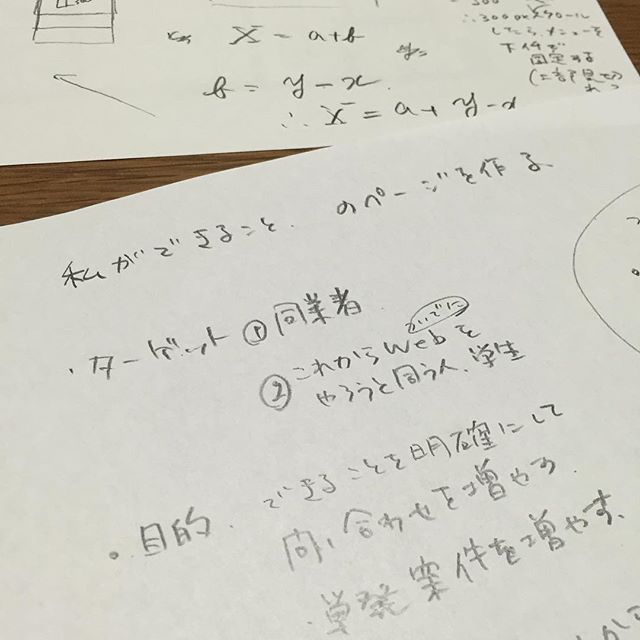 X = a+b
b = y-x
∴ X = a + y-x
300
∴300pxスクロール
したら、メニューを
下付で
固定する
私ができること のページを作る
・ターゲット ① 同業者
ついでに
② これからWebを
やろうと思う人、学生
・目的 できることを明確にして
問い合わせを増やす
・単発案件を増やす、